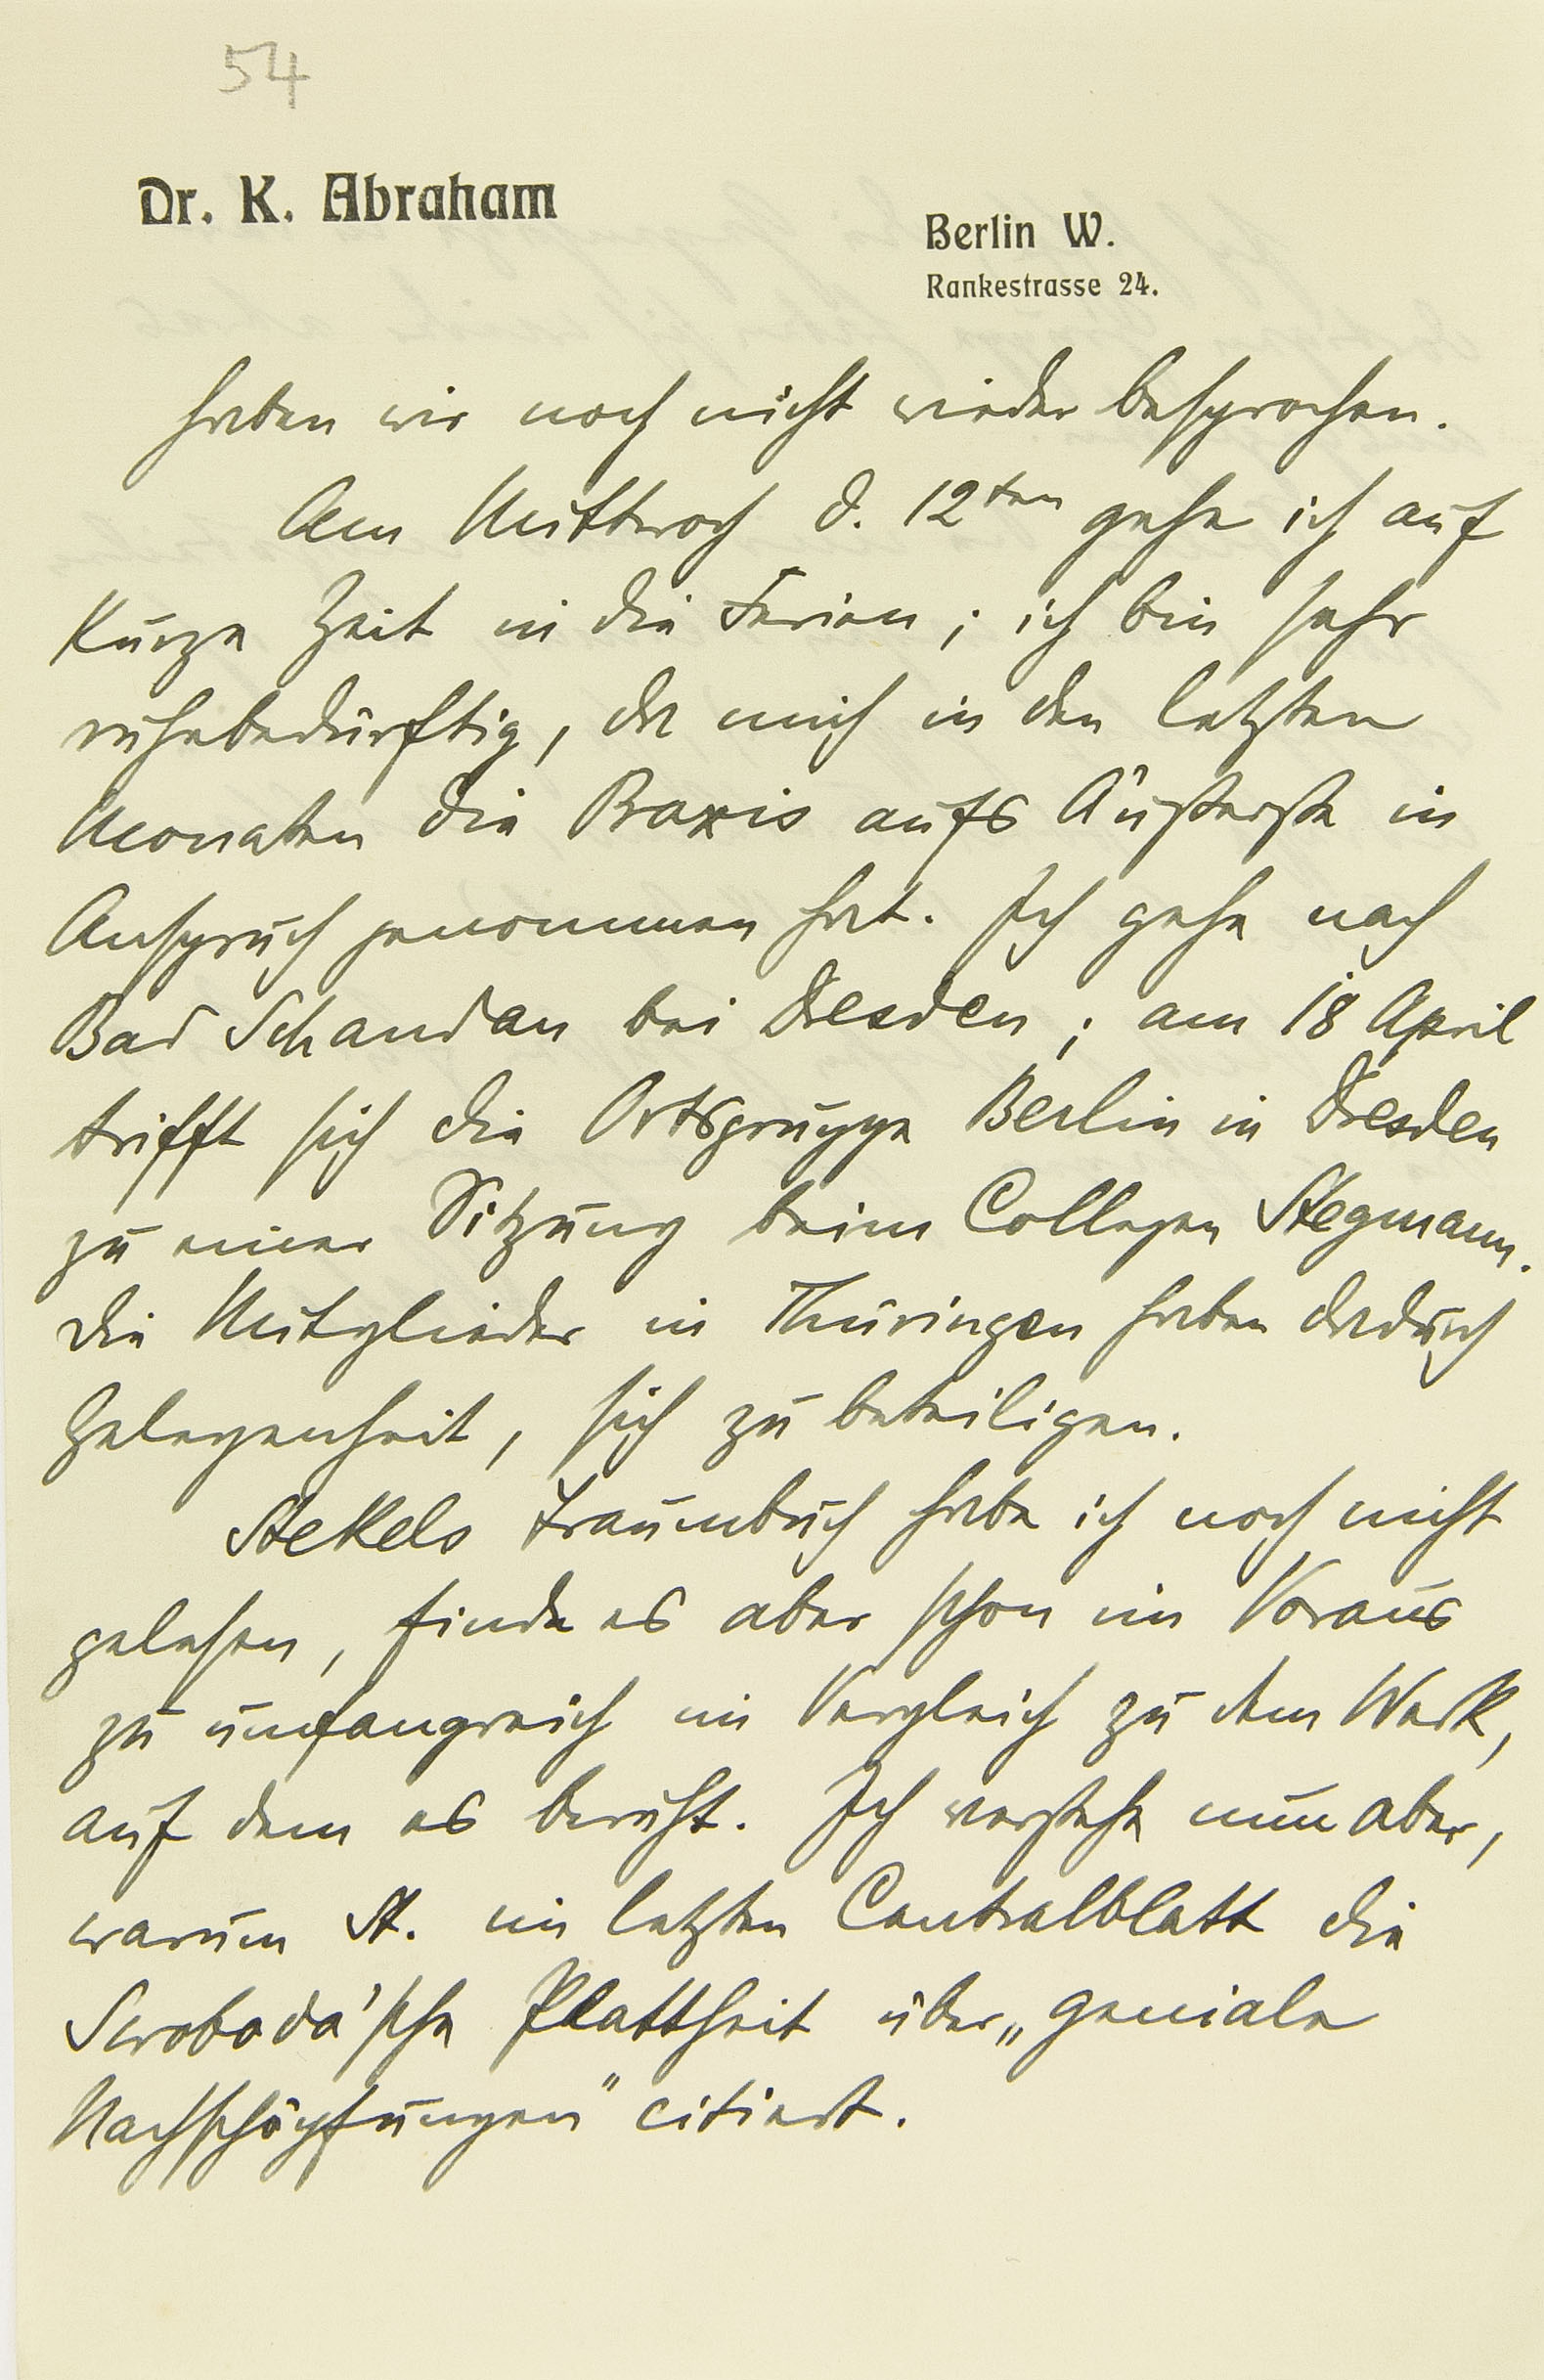 54
Dr. K. Abraham
Berlin W.
Rankestrasse 24.
haben wir noch nicht wieder besprochen.
Am Mittwoch d. 12ten gehe ich auf
kurze Zeit in die Ferien; ich bin sehr
ruhebedürftig, da mich in den letzten
Monaten die Praxis aufs Äußerste in
Anspruch genommen hat. Ich gehe nach
Bad Schandau bei Dresden; am 18 April
trifft sich die Ortsgruppe Berlin in Dresden
zu einer Sitzung beim Collegen Stegmann.
Die Mitglieder in Thüringen haben dadurch
Gelegenheit, sich zu beteiligen.
Stekels Traumbuch habe ich noch nicht
gelesen, finde es aber schon im Voraus
zu umfangreich im Vergleich zu dem Werk,
auf dem es beruht. Ich verstehe nun aber,
warum St. im letzten Centralblatt die
Swoboda'sche Plattheit über „geniale
Nachschöpfungen" citiert.